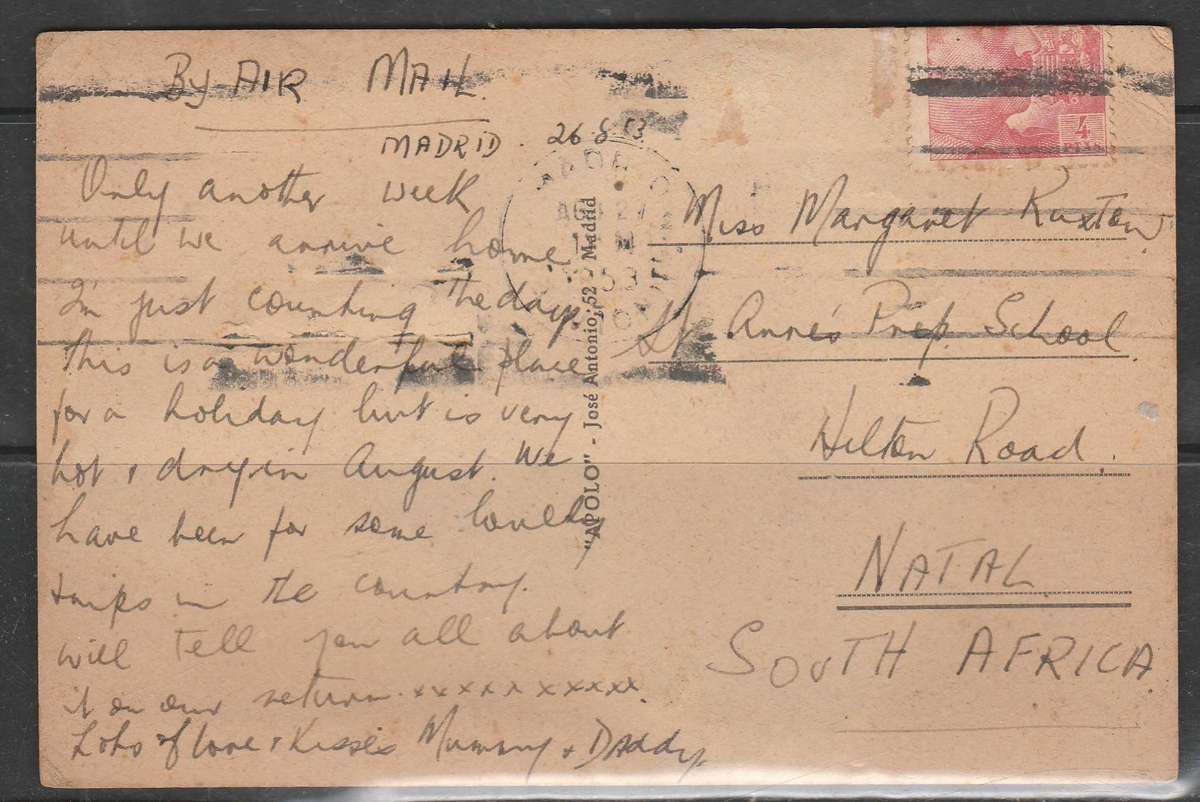 By AIR MAIL
MADRID 26.8.53
Only another week
until we arrive home
I'm just counting the days.
This is a wonderful place
for a holiday but is very
hot & dry in August. We
have been for some lovely
trips in the country.
will tell you all about
it on our return xxxxxxxxxx.
Lots of love & Kisses Mummy & Daddy.
"APOLO" - José Antonio, 52 - Madrid
4
PTAS
Miss Margaret Ruxton
St. Anne's Prep. School
Hilton Road.
NATAL
SOUTH AFRICA